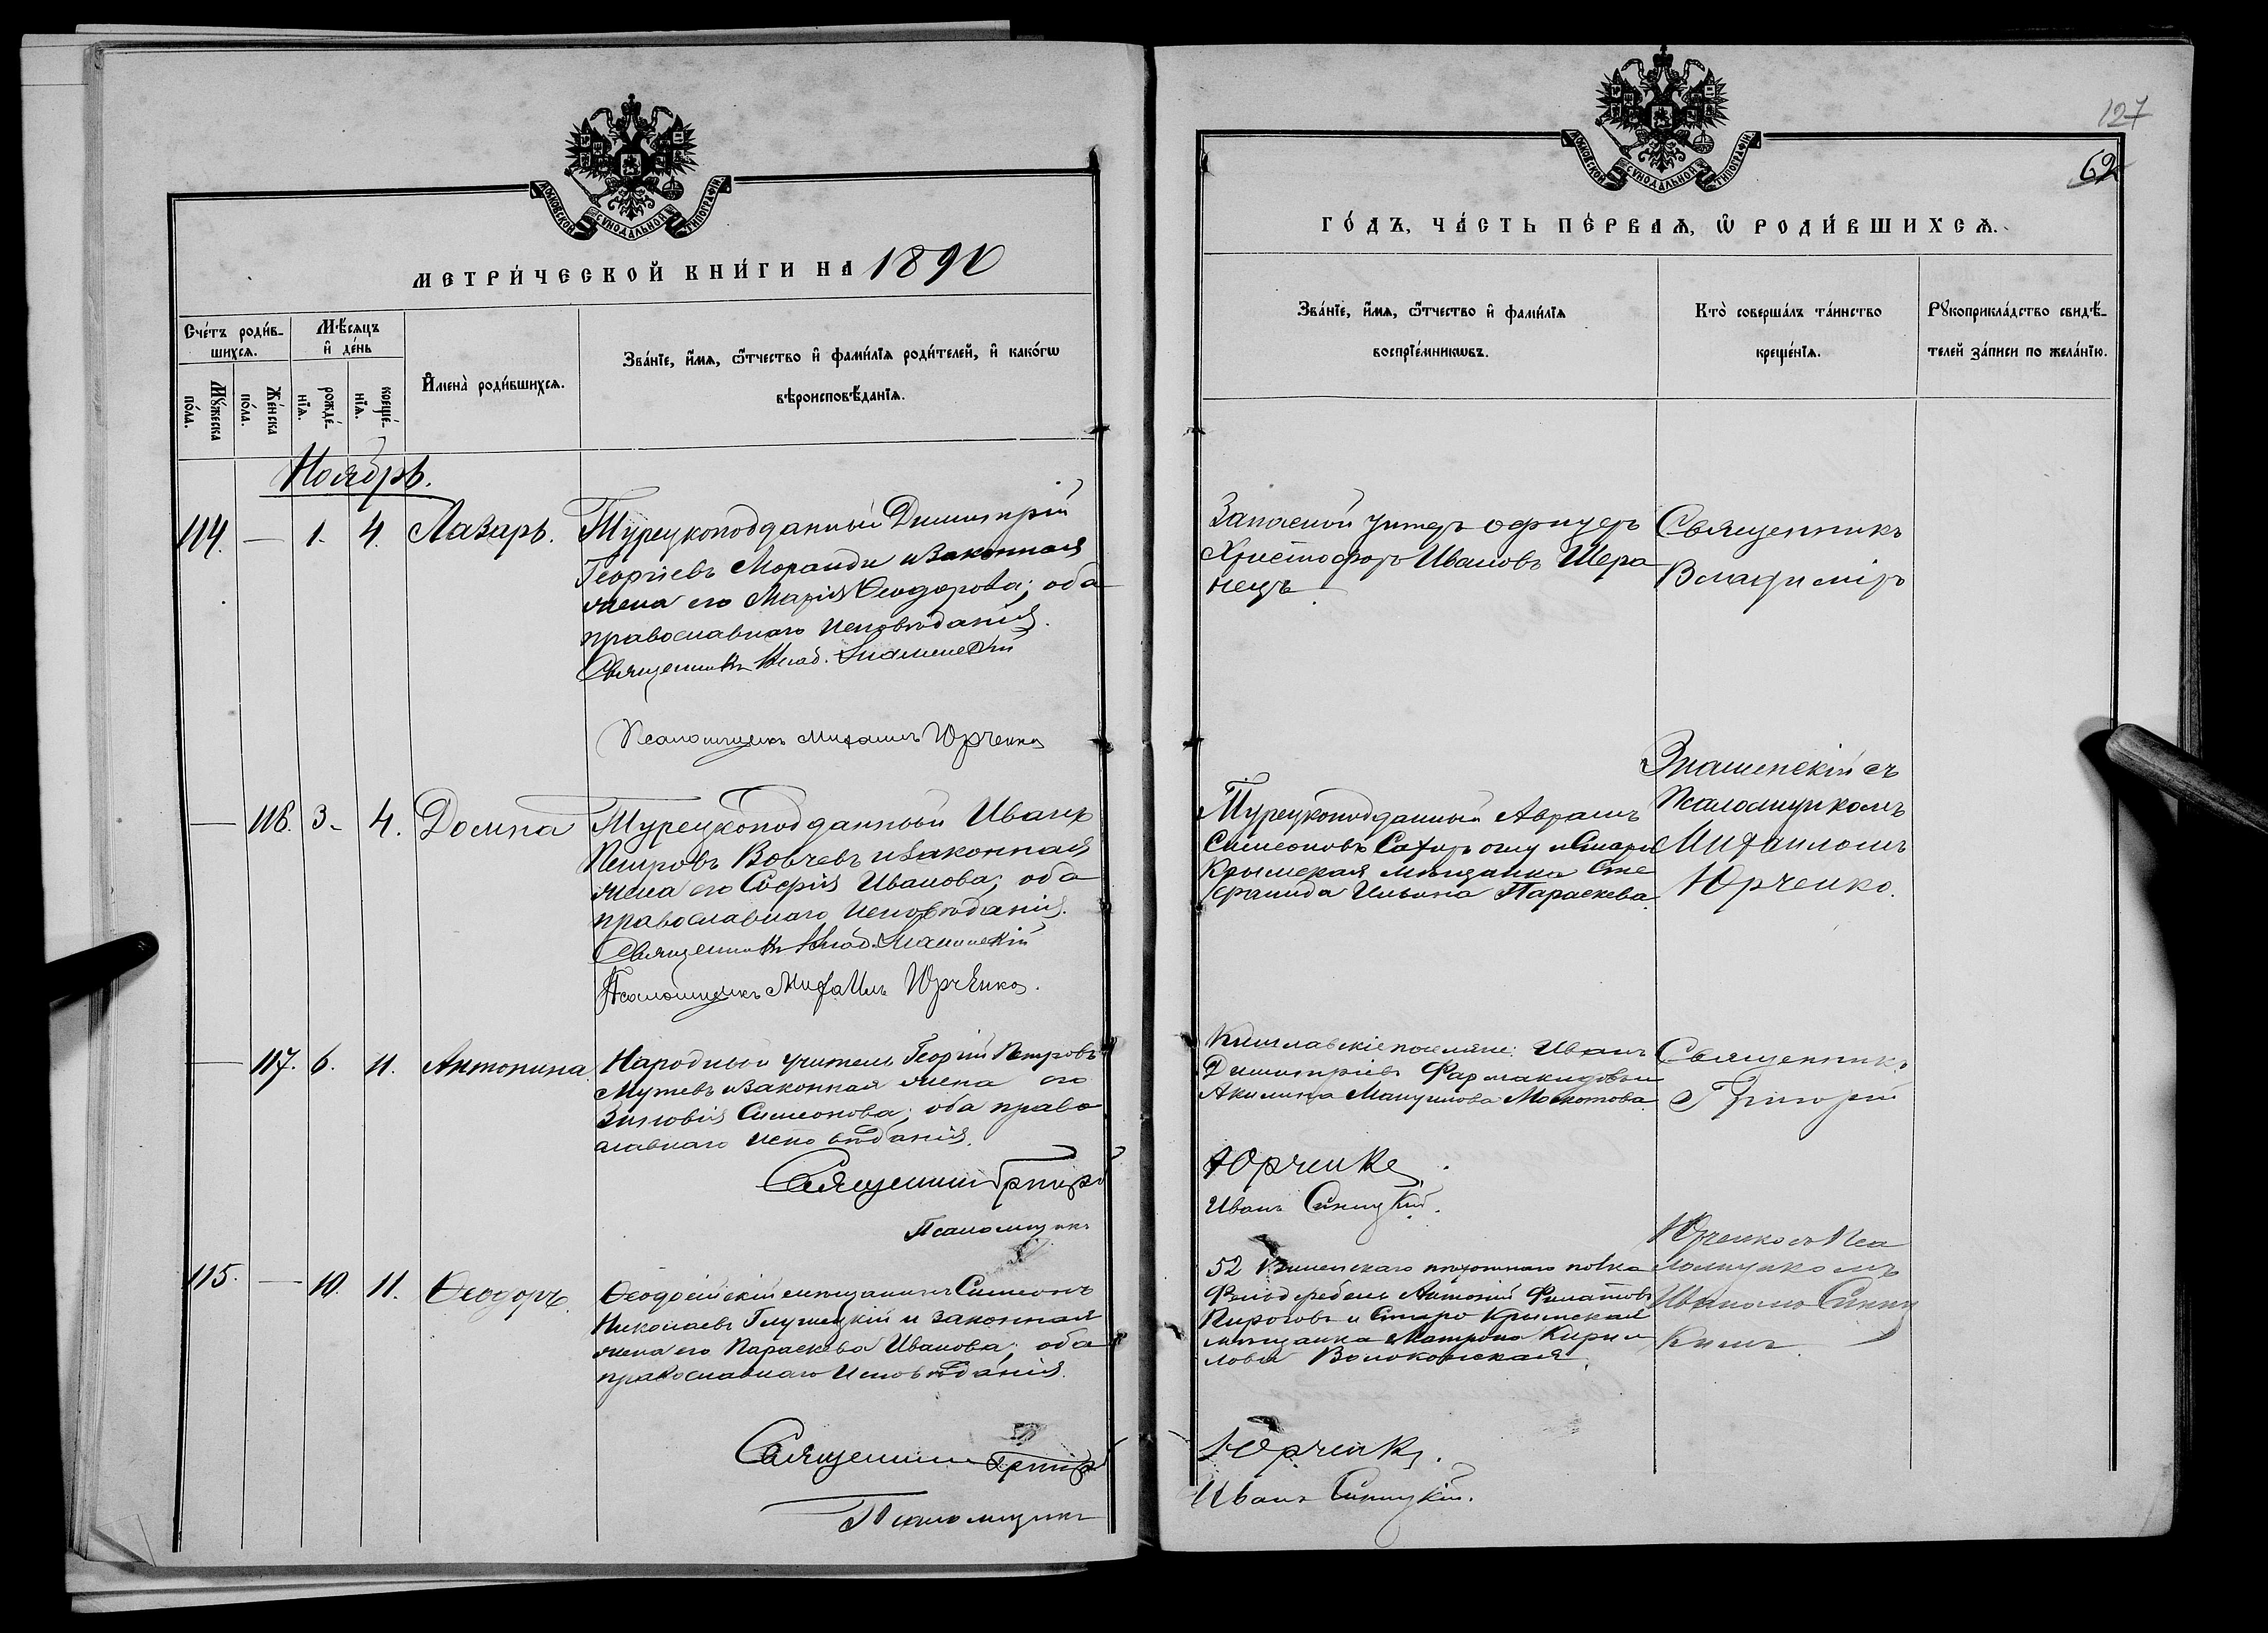 МОСКОВСКОЙ СѴНОДАЛЬНОЙ ТИПОГРАФІИ.
МЕТРИ́ЧЕСКОЙ КНИ́ГИ НА 1890
Сче́тъ роди́в-
шихсѧ.
Мꙋ́жеска
по́ла.
Же́нска
по́ла.
Мѣ́сѧцъ
и҆ де́нь
рожде́-
нїѧ.
креще́-
нїѧ.
И҆мена̀ роди́вшихсѧ.
Зва́нїе, и҆́мѧ, ѻ҆́тчество и҆ фами́лїѧ роди́телей, и҆ како́гѡ
вѣроисповѣ́данїѧ.
Ноябрь.
114. — 1. 4. Лазарь.
Турецкоподданный Димитрій
Георгіевъ Моранди и законная
жена его Марія Ѳеодорова; оба
православнаго исповѣданія.
Священникъ Влад. Знаменскій
Псаломщикъ Михаилъ Юрченко
— 116. 3. 4. Домна
Турецкоподданный Иванъ
Петровъ Вовчевъ и законная
жена его Софія Иванова; оба
православнаго исповѣданія.
Священникъ Влад. Знаменскій
Псаломщикъ Михаилъ Юрченко.
— 117. 6. 11. Антонина
Народный учитель Георгій Петровъ
Мутевъ и законная жена его
Зиновія Симеонова; оба право
славнаго исповѣданія.
Священникъ Григорій
Псаломщикъ
115. — 10. 11. Ѳеодоръ.
Ѳеодосійскій мѣщанинъ Симеонъ
Николаевъ Глушецкій и законная
жена его Параскева Иванова; оба
православнаго исповѣданія.
Священникъ Григорій
Псаломщикъ
127
62
МОСКОВСКОЙ СѴНОДАЛЬНОЙ ТИПОГРАФІИ.
ГО́ДЪ, ЧА́СТЬ ПЕ́РВАѦ, Ѽ РОДИ́ВШИХСѦ.
Зва́нїе, и҆́мѧ, ѻ҆́тчество и҆ фами́лїѧ
воспрїе́мникѡвъ.
Кто̀ соверша́лъ та́инство
креще́нїѧ.
Рꙋкоприкла́дство свидѣ́-
телей за́писи по жела́нїю.
Запасной унтеръ офицеръ
Христофоръ Ивановъ Шера
нецъ.
Священникъ
Владиміръ
Знаменскій съ
Псаломщикомъ
Михаиломъ
Юрченко.
Турецкоподданный Аврамъ
Симеоновъ и Старо
Крымская мѣщанка Сте
фанида Ильина Параскева.
Кишлавскіе поселяне: Иванъ
Димитріевъ Фармакидовъ и
Акилина Мануилова Москотова.
Юрченко.
Иванъ Синицкій.
Священникъ
Григорій
Юрченко съ Пса
ломщикомъ
Иваномъ Синиц
кимъ.
52 Виленскаго пѣхотнаго полка
Фельдфебель Антоній Филатовъ
Пироговъ и Старо Крымская
мѣщанка Матрона Кирил
лова Волоконская.
Юрченко.
Иванъ Синицкій.